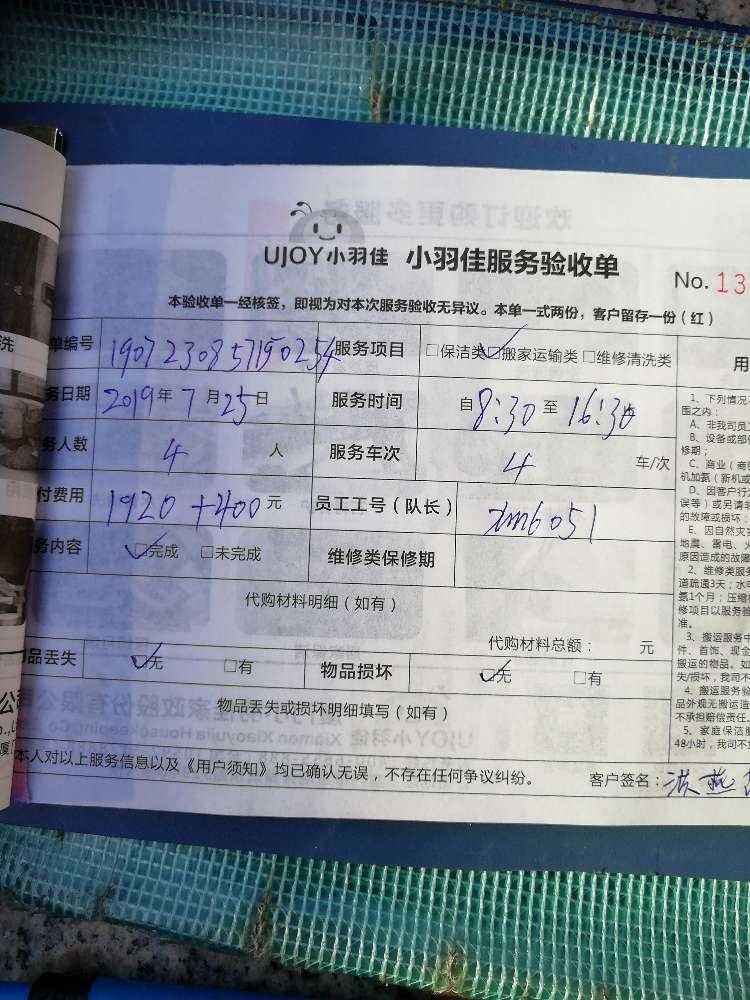 UJOY小羽佳 小羽佳服务验收单
No. 13
本验收单一经核签，即视为对本次服务验收无异议。本单一式两份，客户留存一份（红）
单编号 1907230857150254 服务项目 □保洁类 ☑搬家运输类 □维修清洗类
务日期 2019年7月25日 服务时间 自8:30至16:30
务人数 4 人 服务车次 4 车/次
付费用 1920+400元 员工工号（队长） xm6051
务内容 ☑完成 □未完成 维修类保修期
代购材料明细（如有）
代购材料总额： 元
品丢失 ☑无 □有 物品损坏 ☑无 □有
物品丢失或损坏明细填写（如有）
本人对以上服务信息以及《用户须知》均已确认无误，不存在任何争议纠纷。 客户签名：洪燕
用
1、下列情况
围之内：
A、非我司员
B、设备或部
修期；
C、商业（商
机加氨（新机或
D、因客户行
误等）或另请非
的故障或损坏；
E、因自然灾
地震、雷电、火
原因造成的故障
2、维修类服
道疏通3天；水
氨1个月；压缩
修项目以服务验
准。
3、搬运服务中
件、首饰、现金
搬运的物品。如
失/损坏，我司不
4、搬运服务
品外观无搬运造
不承担赔偿责任。
5、家庭保洁
48小时，我司不
洗